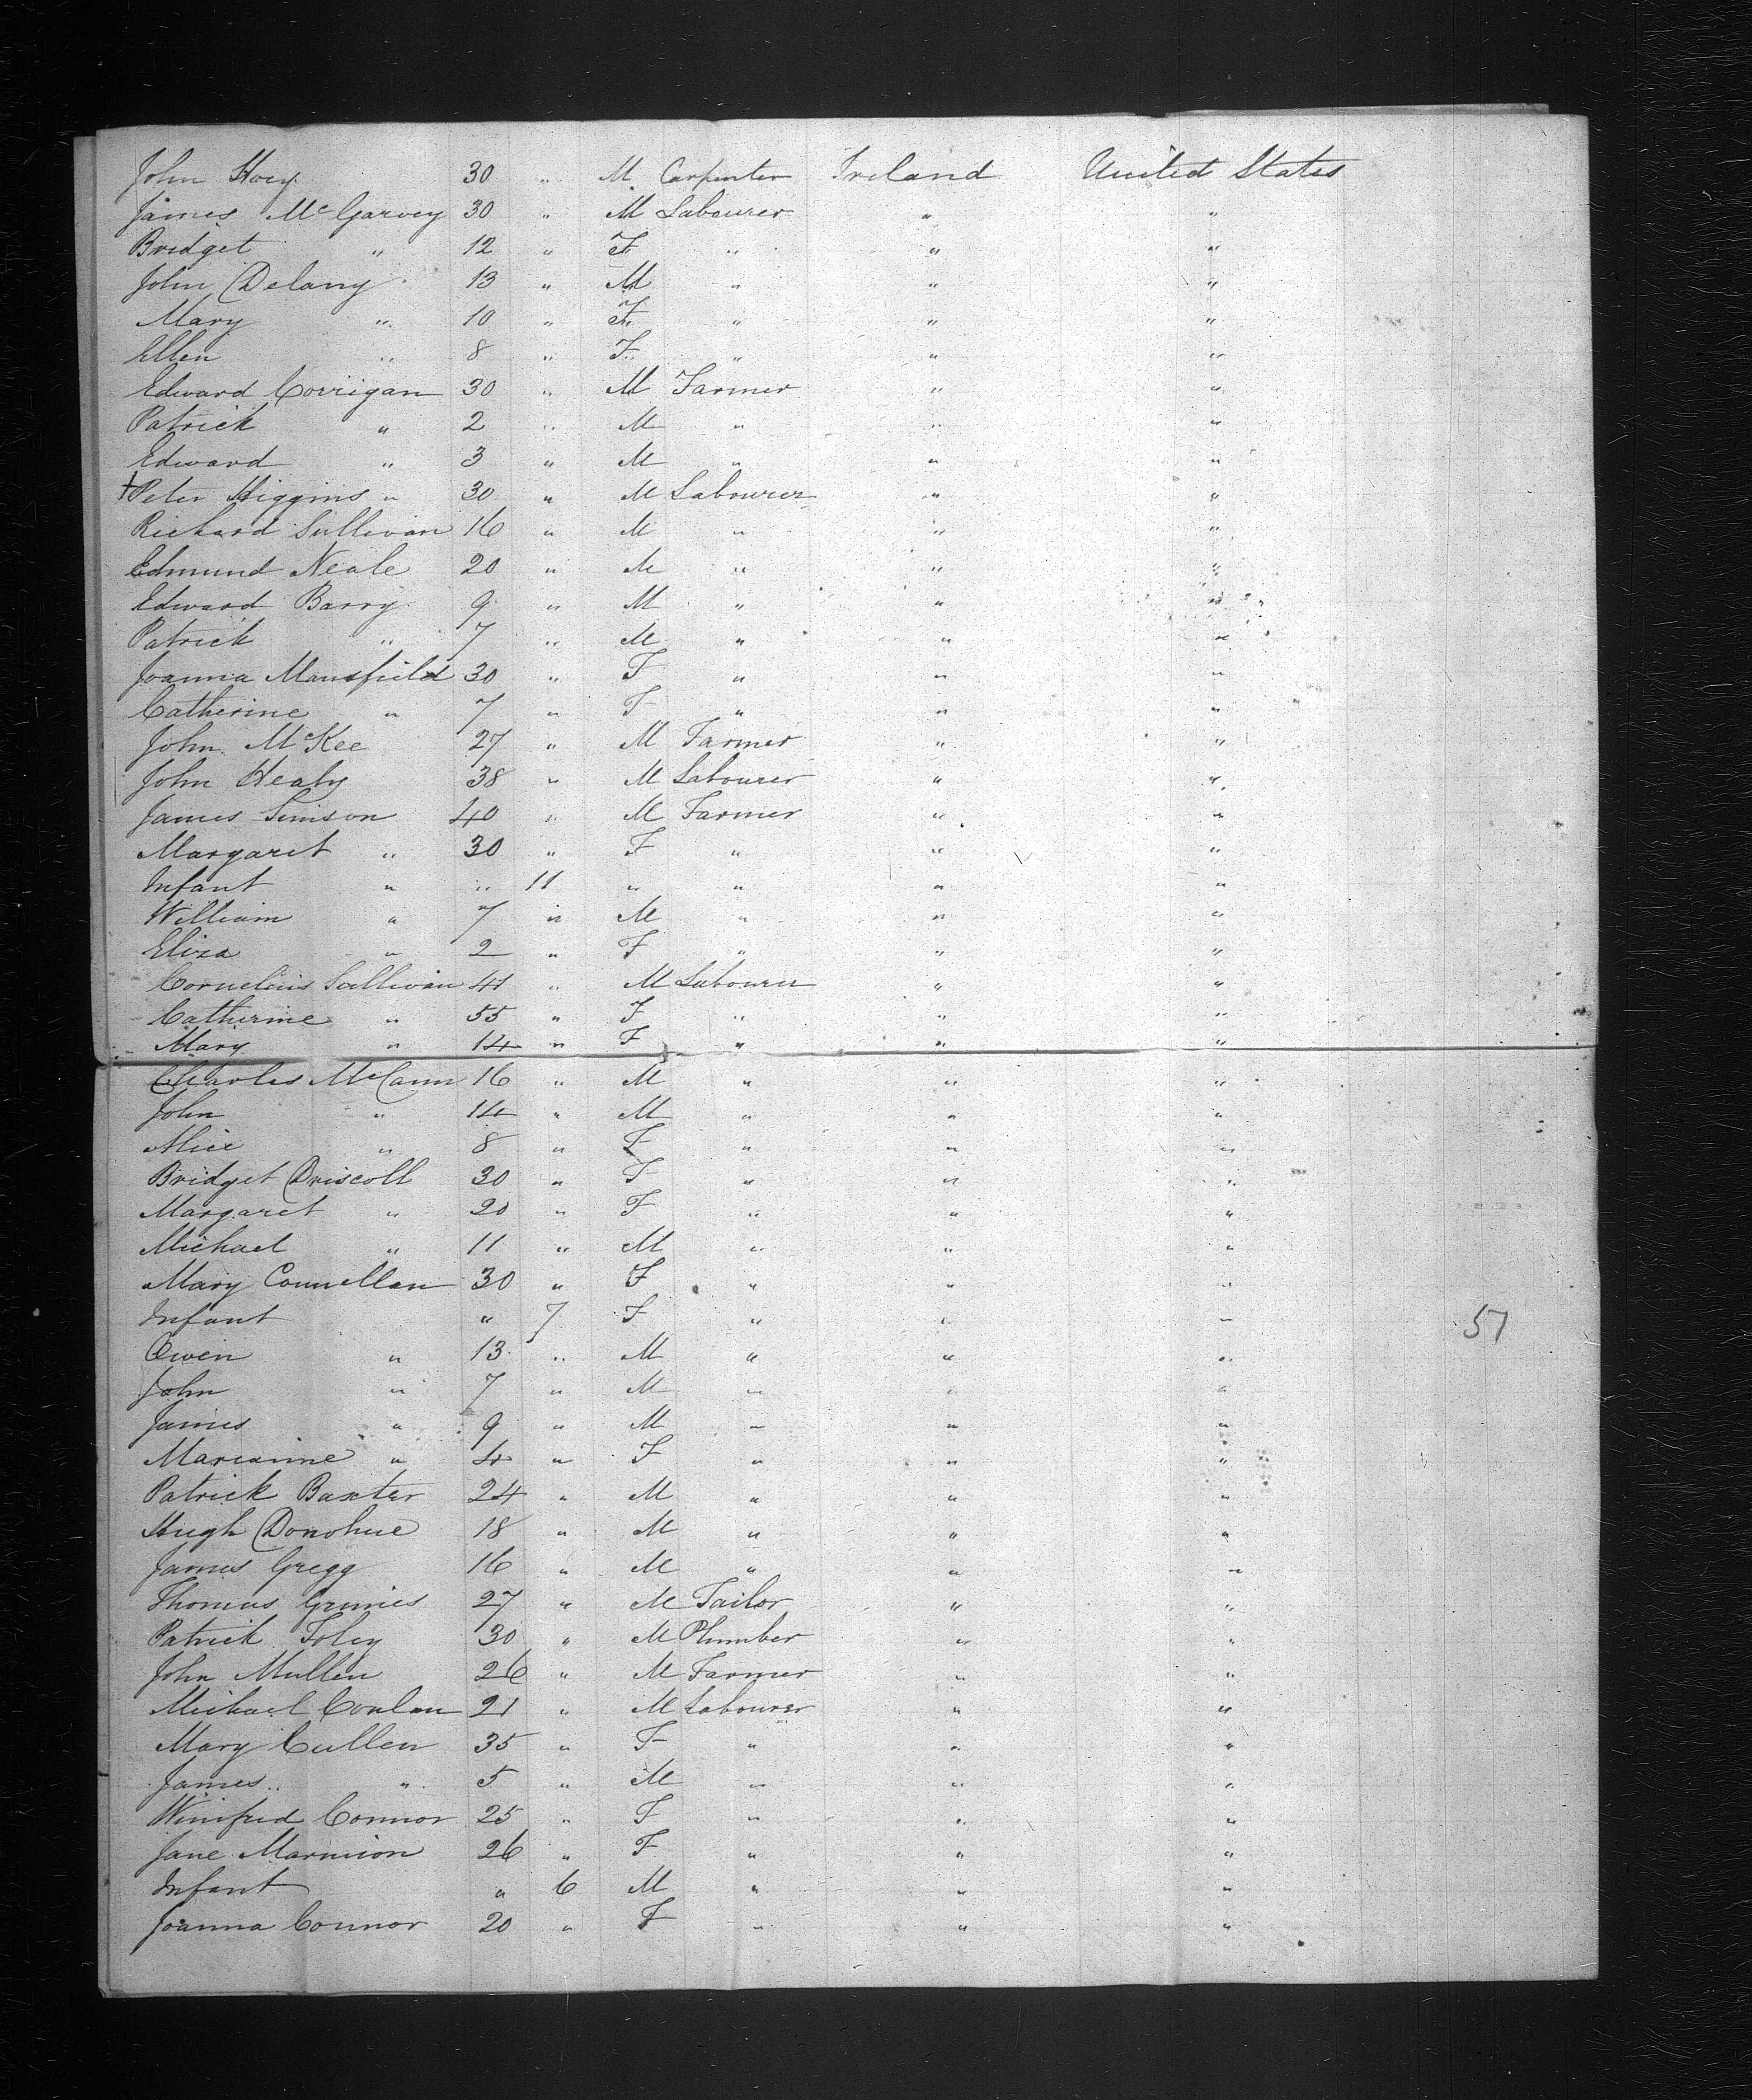 John Hoey 30 " M Carpenter Ireland United States
James McGarvey 30 " M Labourer " "
Bridget " 12 " F " " "
John Delany 13 " M " " "
Mary " 10 " F " " "
Ellen " 8 " F " " "
Edward Corrigan 30 " M Farmer " "
Patrick " 2 " M " " "
Edward " 3 " M " " "
+Peter Higgins " 30 " M Labourer " "
Richard Sullivan 16 " M " " "
Edmund Neale 20 " M " " "
Edward Barry 9 " M " " "
Patrick " 7 " M " " "
Joanna Mansfield 30 " F " " "
Catherine " 7 " F " " "
John McKee 27 " M Farmer " "
John Healy 38 " M Labourer " "
James Simson 40 " M Farmer " "
Margaret " 30 " F " " "
Infant " " 11 " " " "
William " 7 " M " " "
Eliza " 2 " F " " "
Cornelius Sullivan 41 " M Labourer " "
Catherine " 55 " F " " "
Mary " 14 " F " " "
Charles McCann 16 " M " " "
John " 14 " M " " "
Alice " 8 " F " " "
Bridget Driscoll 30 " F " " "
Margaret " 20 " F " " "
Michael " 11 " M " " "
Mary Connellan 30 " F " " "
Infant " 7 F " " " 57
Owen " 13 " M " " "
John " 7 " M " " "
James " 9 " M " " "
Marianne " 4 " F " " "
Patrick Baxter 24 " M " " "
Hugh Donohue 18 " M " " "
James Gregg 16 " M " " "
Thomas Grimes 27 " M Tailor " "
Patrick Foley 30 " M Plumber " "
John Mullen 26 " M Farmer " "
Michael Conlan 21 " M Labourer " "
Mary Cullen 35 " F " " "
James " 5 " M " " "
Winifred Connor 25 " F " " "
Jane Marmion 26 " F " " "
Infant " 6 M " " "
Joanna Connor 20 " F " " "